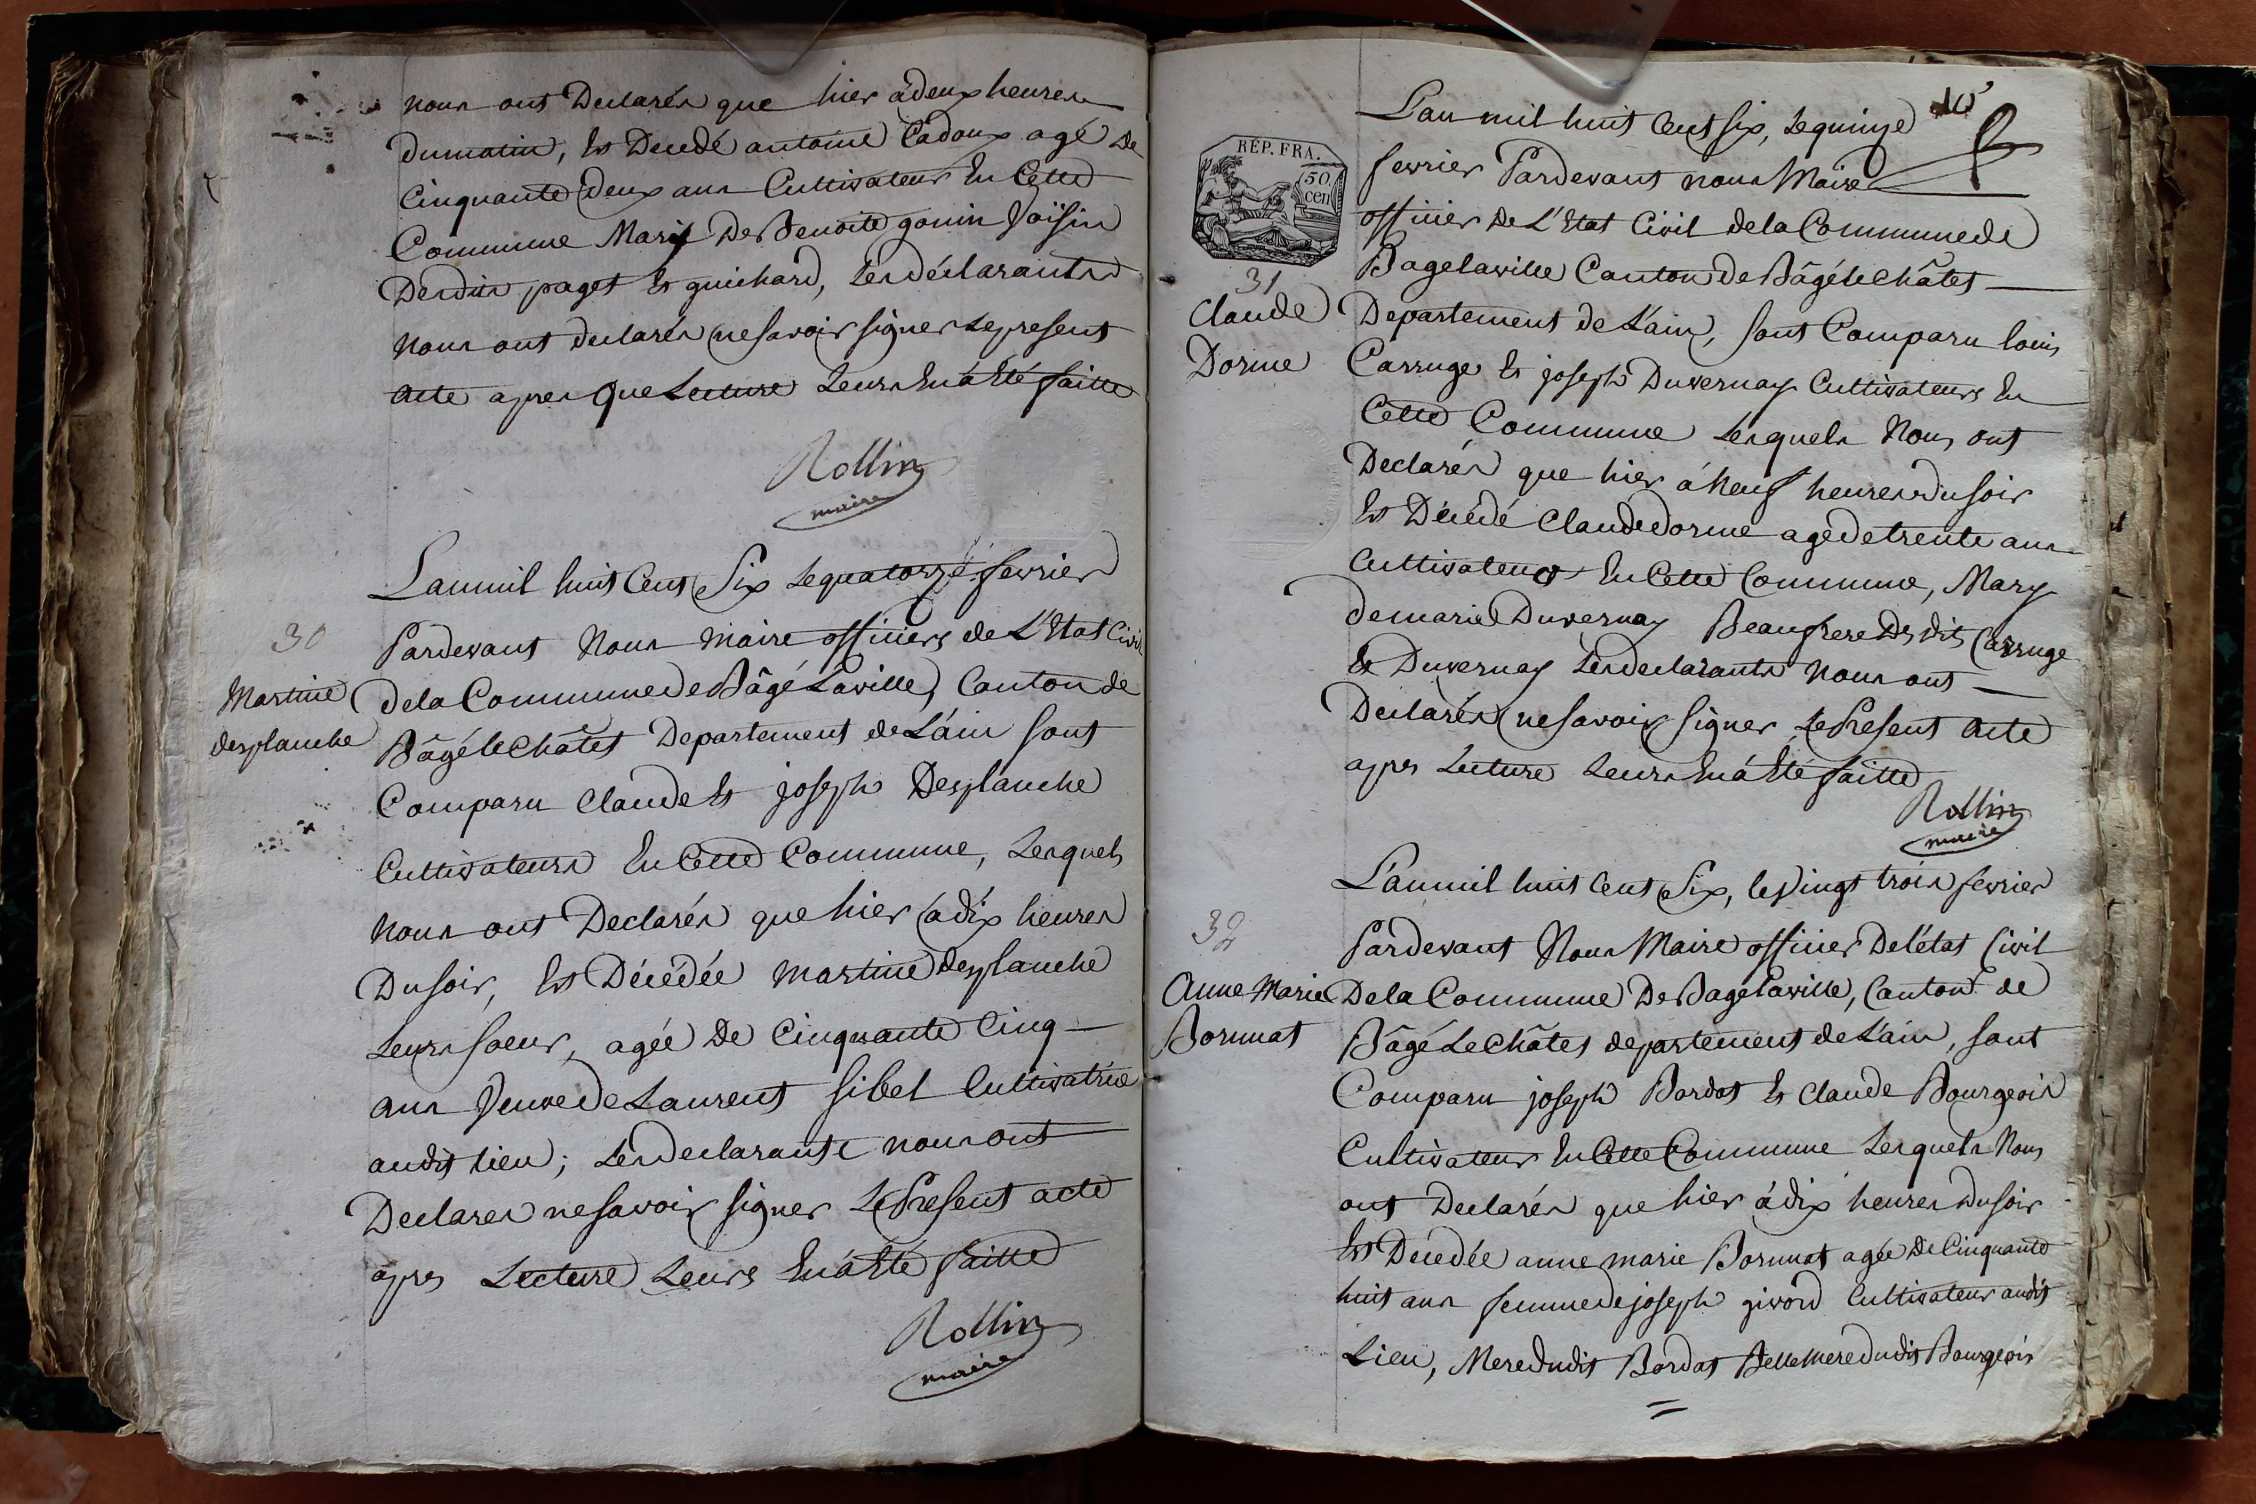 nous ont Declarés que hier à deux heures
du matin, est Decedé antoine Cadoux agé de
cinquante deux ans Cultivateur En Cette
Commune Mary De Benoite gonin Voisin
Desdits paget et guichard, Les déclarants
nous ont declarés ne savoir signer Le present
acte apres que Lecture Leurs En á Eté faitte
Rollin
maire
L'an mil huit Cent Six Le quatorze fevrier
30
Martine
desplanche
Pardevant Nous maire officiers de L'Etat Civil
de la Commune de Bâgé Laville, Canton de
Bâgé le Châtel Departement de L'ain sont
Comparu Claude et joseph Desplanche
Cultivateurs En Cette Commune, Lesquels
nous ont Declarés que hier à dix heures
Du soir, Est Décédée Martine desplanche
Leurs soeur, agée De Cinquante Cinq
ans Veuve de Laurent sibel Cultivatrice
audit lieu; Les declarants nous ont
Declares ne savoir signer Le Present acte
apres Lecture Leurs En á Eté faitte
Rollin
maire
10
L'an mil huit Cent six, Le quinze
RÉP. FRA.
50
cen
fevrier Pardevant nous Maire
officier De L'Etat Civil de la Commune de
Bagelaville Canton de Bâgé le Châtel
31
Claude
Dorme
Departement de L'ain, sont Comparu louis
Carruge et joseph Duvernay Cultivateurs En
Cette Commune Lesquels Nous ont
Declarés que hier á Neuf heures du soir
Est Décédé Claude dorme agé de trente ans
Cultivateur En Cette Commune, Mary
de marie Duvernay Beaufrere Des dits Carruge
et Duvernay Les declarants nous ont
Declarés ne savoir signer Le Present acte
apres Lecture Leurs En á Eté faitte
Rollin
maire
L'an mil huit cent Six, le Vingt trois fevrier
32
Anne Marie
Bornnat
Pardevant Nous Maire officier De l'état Civil
De la Commune De Bagé Laville, Canton de
Bâgé Le Châtel departement de L'ain, sont
Comparu joseph Bordat et Claude Bourgeois
Cultivateur En Cette Commune Lesquels Nous
ont Declarés que hier á dix heures du soir
Est Decedée anne marie Bornnat agée De Cinquante
huit ans femme de joseph givord Cultivateur audit
Lieu, Mere dudit Bordat Belle mere dudit Bourgeois